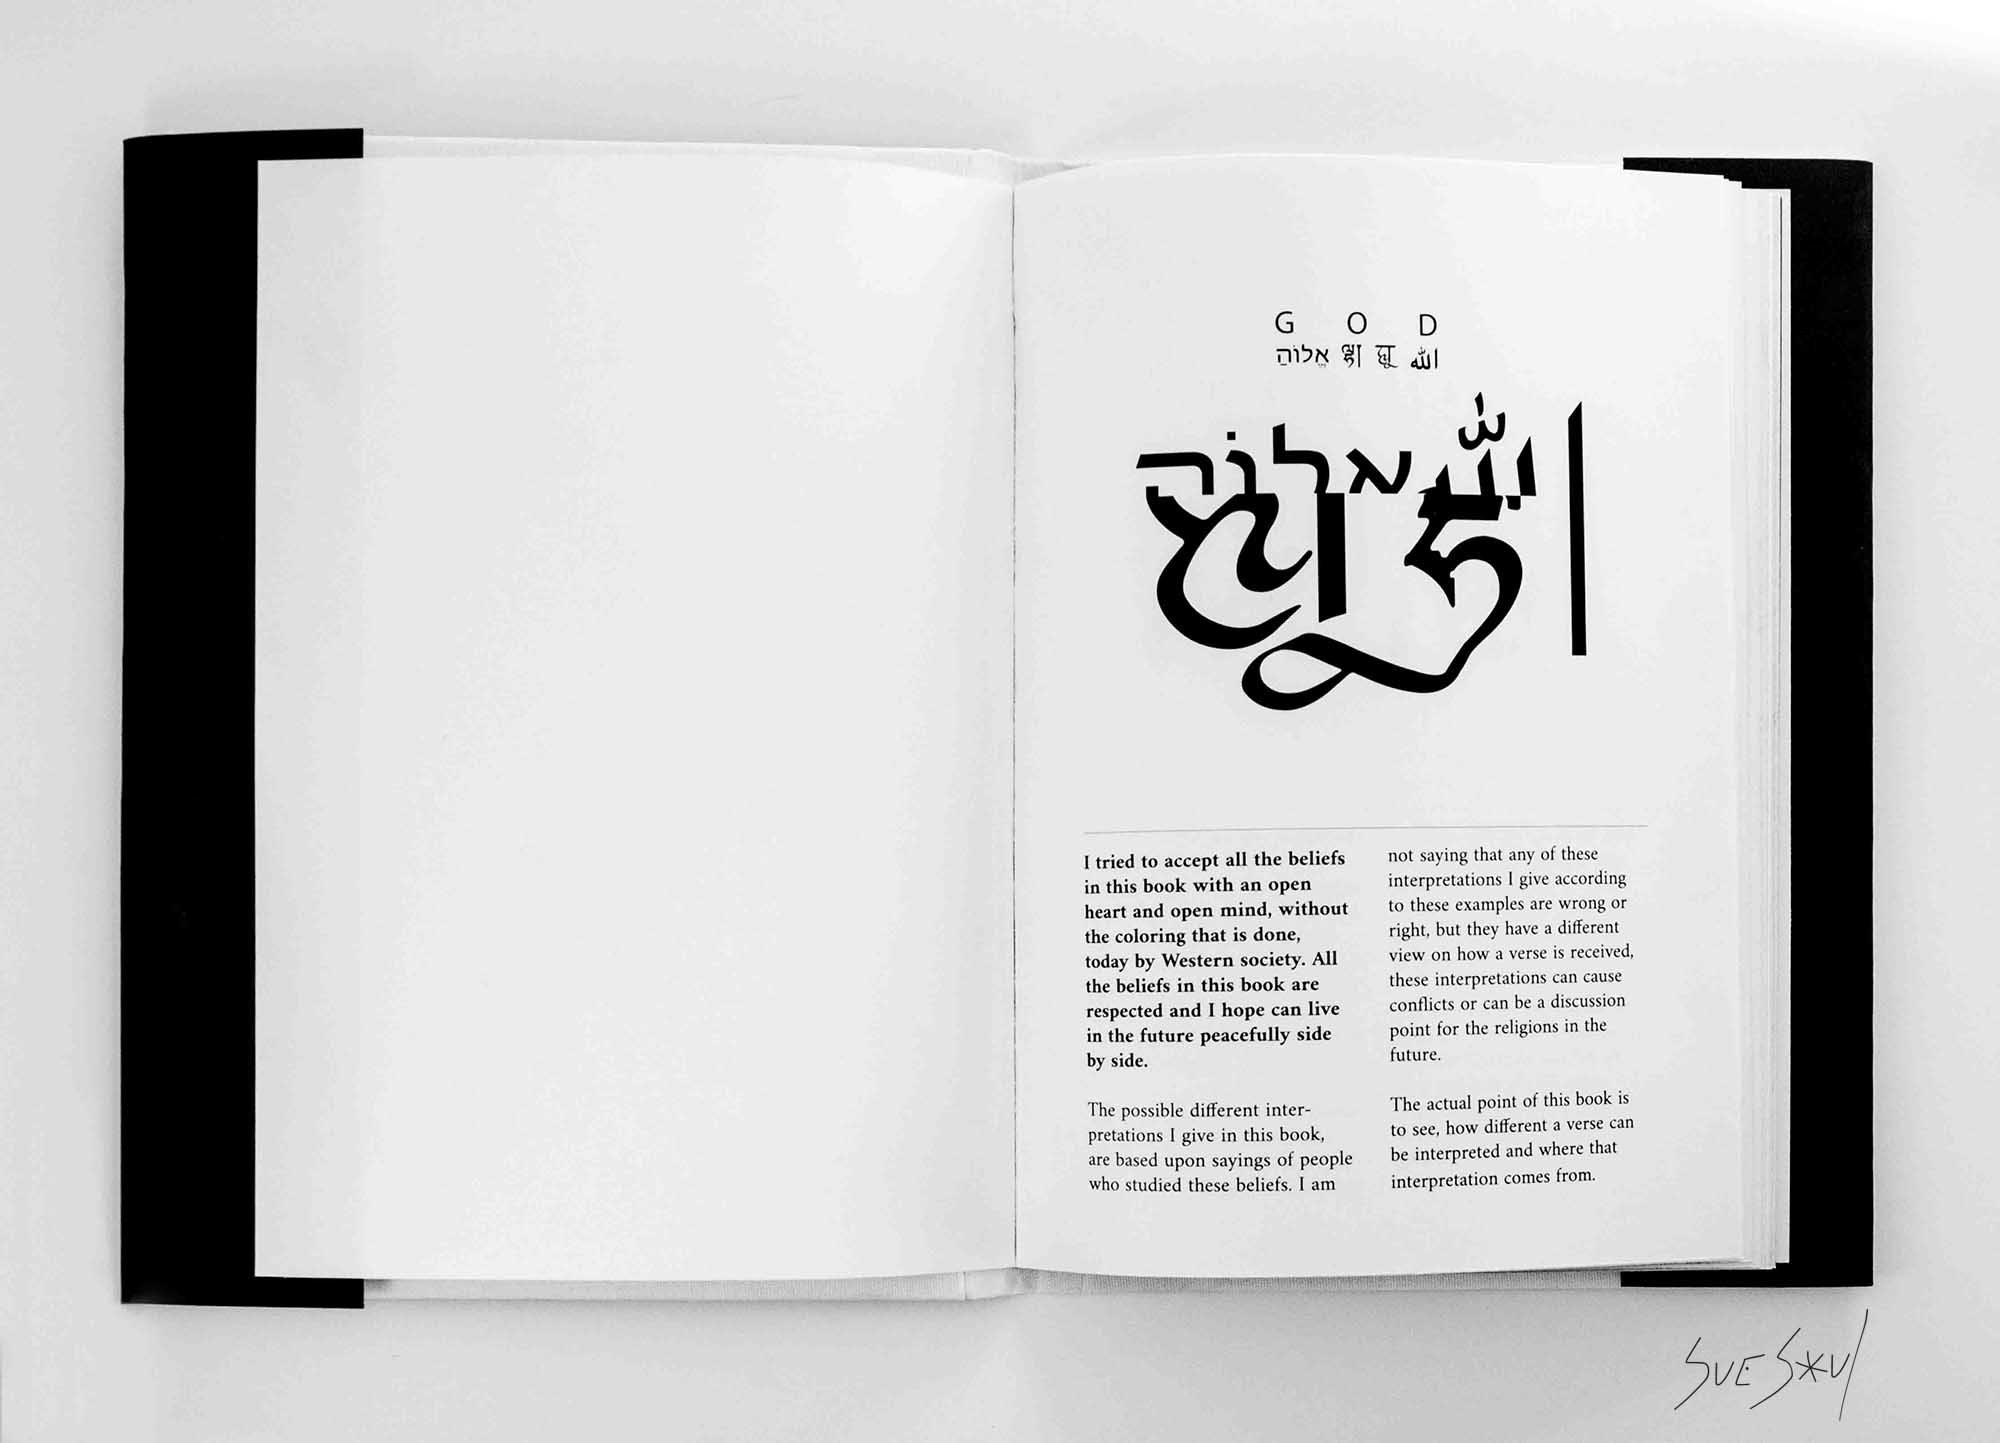 G O D
אֱלוֹהַּ الله
I tried to accept all the beliefs
in this book with an open
heart and open mind, without
the coloring that is done,
today by Western society. All
the beliefs in this book are
respected and I hope can live
in the future peacefully side
by side.
The possible different inter-
pretations I give in this book,
are based upon sayings of people
who studied these beliefs. I am
not saying that any of these
interpretations I give according
to these examples are wrong or
right, but they have a different
view on how a verse is received,
these interpretations can cause
conflicts or can be a discussion
point for the religions in the
future.
The actual point of this book is
to see, how different a verse can
be interpreted and where that
interpretation comes from.